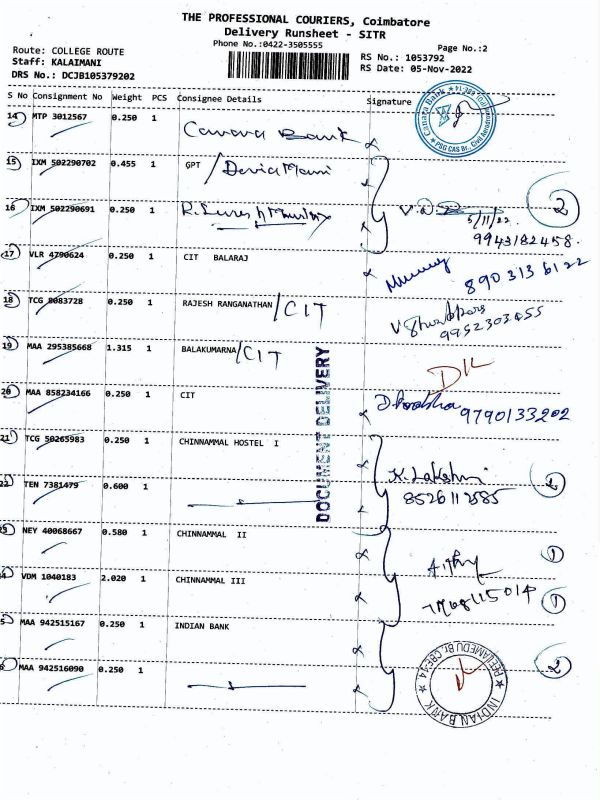 THE PROFESSIONAL COURIERS, Coimbatore
Delivery Runsheet - SITR
Phone No.:0422-3505555
Page No.:2
Route: COLLEGE ROUTE
RS No.: 1053792
Staff: KALAIMANI
RS Date: 05-Nov-2022
DRS No.: DCJB105379202
S No Consignment No Weight PCS Consignee Details Signature
14 MTP 3012567 0.250 1 Canara Bank
15 IXM 502290702 0.455 1 GPT /
16 IXM 502290691 0.250 1
2
5/11/22.
9943182458.
17 VLR 4790624 0.250 1 CIT BALARAJ
890 313 6122
18 TCG 8083728 0.250 1 RAJESH RANGANATHAN /CIT
19 MAA 295385668 1.315 1 BALAKUMARNA /CIT
20 MAA 858234166 0.250 1 CIT
9790133202
21 TCG 50265983 0.250 1 CHINNAMMAL HOSTEL I
K. Lakshmi
22 TEN 7381479 0.600 1
8526112585
NEY 40068667 0.580 1 CHINNAMMAL II
1
VDM 1040183 2.020 1 CHINNAMMAL III
1
MAA 942515167 0.250 1 INDIAN BANK
MAA 942516090 0.250 1
2
DOCUMENT DELIVERY
INDIAN BANK